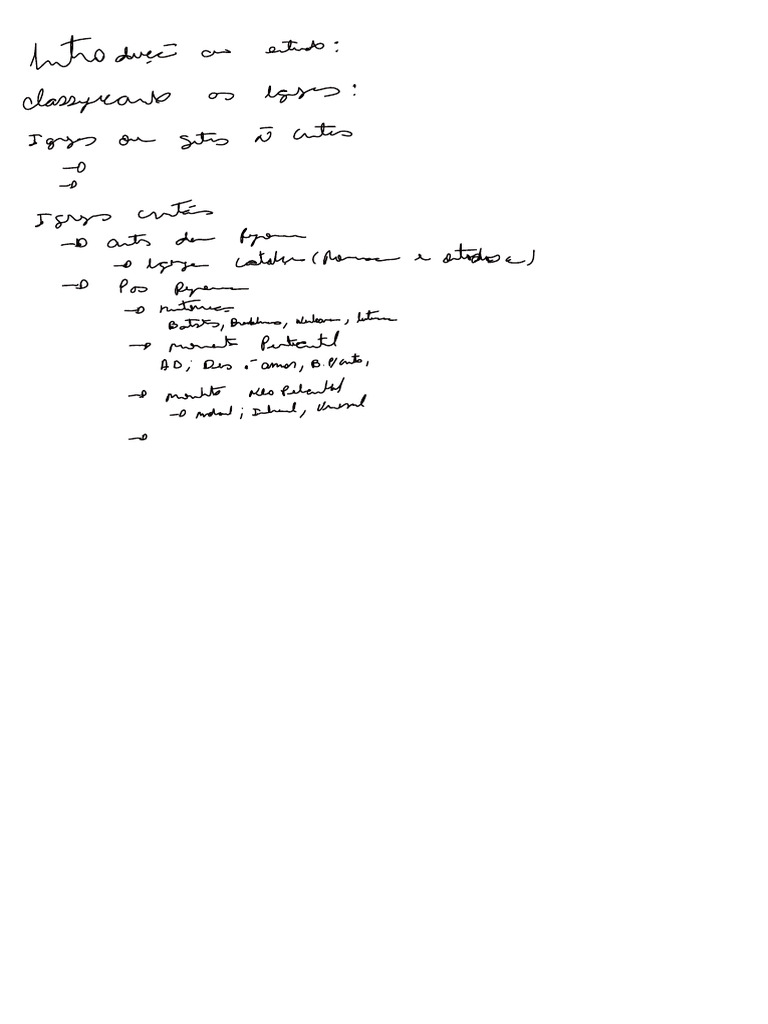 Introdução ao estudo:
Classificando as Igrejas:
Igrejas ou seitas ñ cristãs
Igrejas cristãs
→ antes da Reforma
→ Igreja Católica (Romana e ortodoxa)
→ Pos Reforma
→ históricas
Batista, Presbiteriana, Luterana
→ movimento Pentecostal
AD; Deus é amor, B. p/ cristo,
→ movimento Neo Pentecostal
→ mundial; Internacional, Universal
→